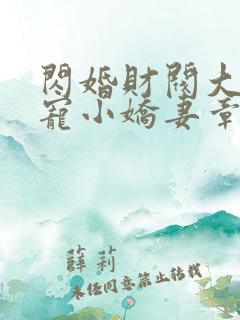 閃婚財閥大
寵小嬌妻章
薛莉
未經同意禁止轉載